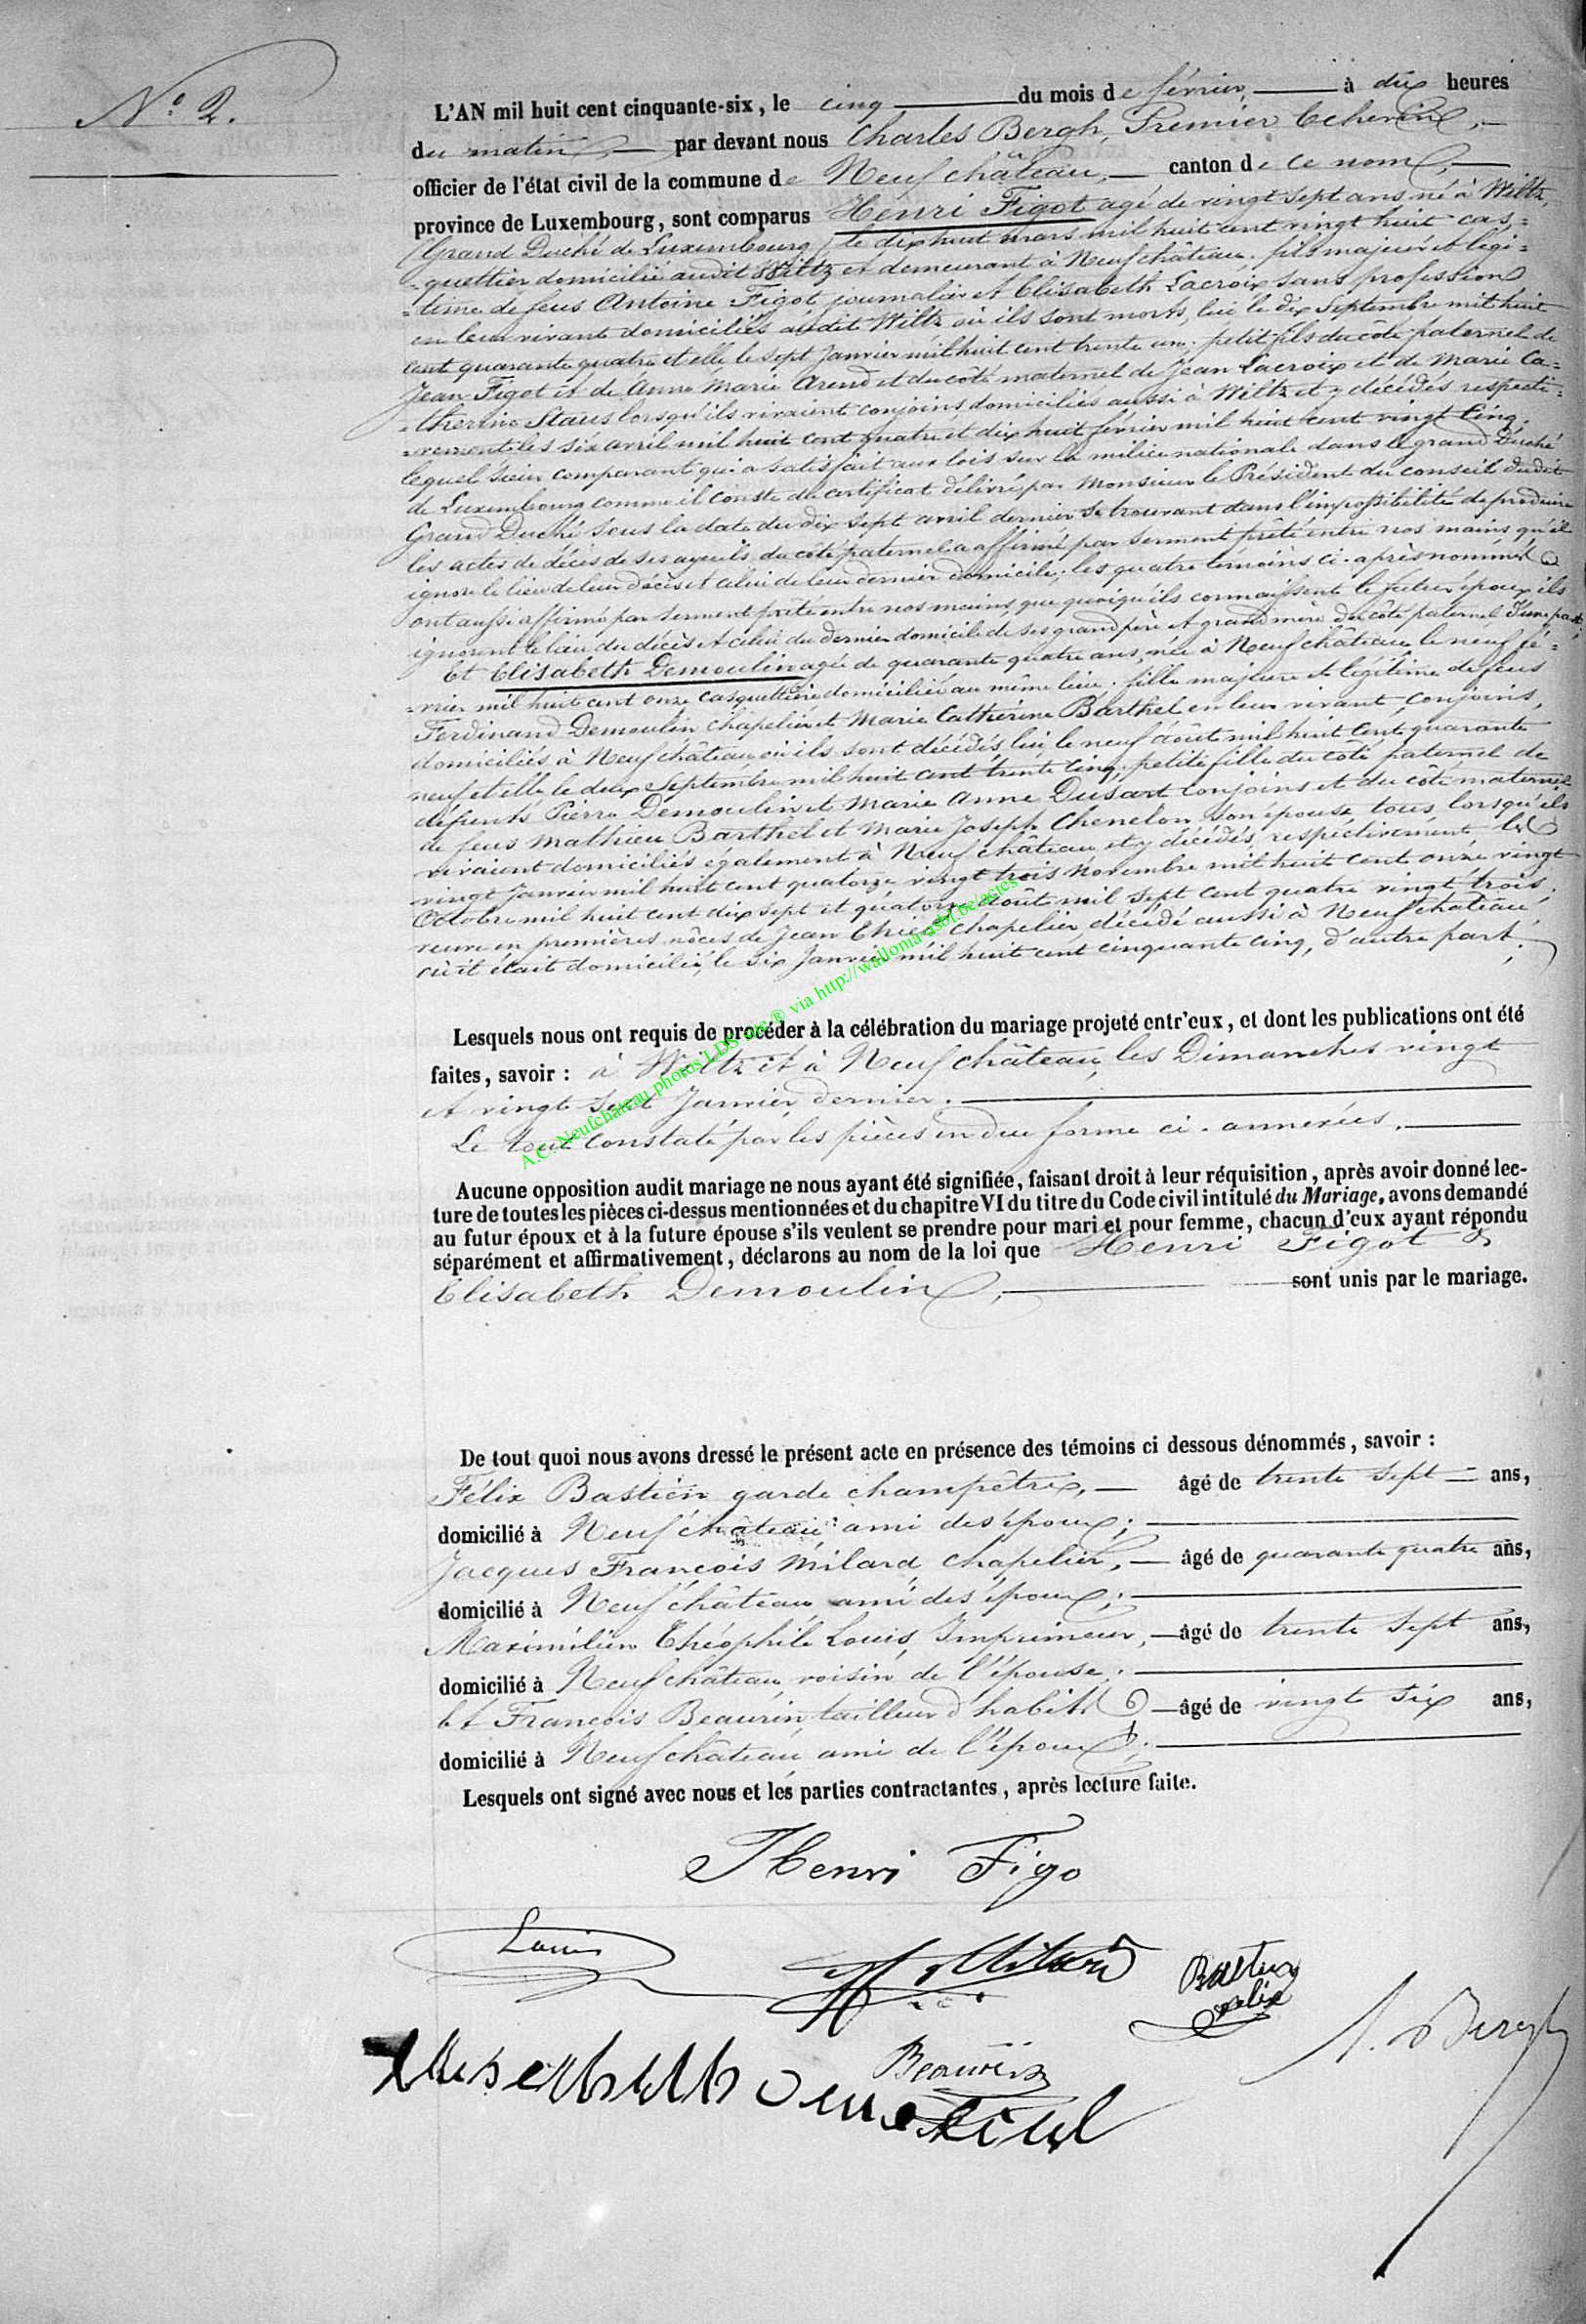 N.° 2.
L'AN mil huit cent cinquante-six, le cinq du mois de février, à dix heures
du matin, par devant nous Charles Bergh, Premier Echevin,
officier de l'état civil de la commune de Neufchâteau, canton de ce nom,
province de Luxembourg, sont comparus Henri Figot agé de vingt sept ans, né à Wiltz,
(Grand Duché de Luxembourg) le dix huit mars mil huit cent vingt huit cas,=
=quettier domicilié audit Wiltz et demeurant à Neufchâteau. fils majeur et légi=
=time de feus Antoine Figot journalier et Elisabeth Lacroix sans profession
en leur vivant domiciliés audit Wiltz où ils sont morts, lui le dix Septembre mil huit
cent quarante quatre et elle le sept Janvier mil huit cent trente un. petit fils du côté paternel de
Jean Figot et de Anne Marie Arend et du côté maternel de Jean Lacroix et de Marie Ca=
=therine Staus lorsqu'ils vivaient conjoins domiciliés aussi à Wiltz et y décédés respecti=
=vement les six avril mil huit cent quatre et dix huit février mil huit cent vingt cinq.
lequel sieur comparant qui a satisfait aux lois sur la milice nationale dans le grand Duché
de Luxembourg comme il conste du certificat délivré par Monsieur le Président du conseil dudit
Grand Duché sous la date du dix sept avril dernier se trouvant dans l'impossibilité de produire
les actes de décès de ses ayeuls du côté paternel a affirmé par serment prêté entre nos mains, qu'il
ignore le lieu de leur décès et celui de leur dernier domicile; les quatre témoins ci-après nommés
ont aussi affirmé par serment prêté entre nos mains, que quoiqu'ils connaissent le futur époux, ils
ignorent le lieu du décès et celui du dernier domicile de ses grand père et grand mère du côté paternel d'une part;
Et Elisabeth Demoulin agée de quarante quatre ans, née à Neufchâteau le neuf fé=
=vrier mil huit cent onze casquettière domiciliée au même lieu. fille majeure et légitime de feus
Ferdinand Demoulin chapelier et Marie Catherine Barthel en leur vivant conjoins,
domiciliés à Neufchâteau où ils sont décédés, lui le neuf d'août mil huit cent quarante
neuf et elle le deux Septembre mil huit cent trente cinq. petite fille du côté paternel de
défunts Pierre Demoulin et Marie Anne Dusart conjoins et du côté maternel
de feus Mathieu Barthel et Marie Joseph Chenelon son épouse tous lorsqu'ils
vivaient domiciliés également à Neufchâteau et y décédés respectivement les
vingt Janvier mil huit cent quatorze vingt trois Novembre mil huit cent onze vingt
Octobre mil huit cent dix sept et quatorze d'août mil sept cent quatre vingt trois.
veuve en premières nôces de Jean chapelier, décédé aussi à Neufchâteau,
où il était domicilié, le six Janvier mil huit cent cinquante cinq, d'autre part;
Lesquels nous ont requis de procéder à la célébration du mariage projeté entr'eux, et dont les publications ont été
faites, savoir: à Wiltz et à Neufchâteau, les Dimanches vingt
et vingt sept Janvier dernier.
Le tout constaté par les pièces en due forme ci-annexées.
A.C. Neufchâteau photos LDS etc.® via http://wallonia-asbl.be/actes
Aucune opposition audit mariage ne nous ayant été signifiée, faisant droit à leur réquisition, après avoir donné lec-
ture de toutes les pièces ci-dessus mentionnées et du chapitre VI du titre du Code civil intitulé du Mariage, avons demandé
au futur époux et à la future épouse s'ils veulent se prendre pour mari et pour femme, chacun d'eux ayant répondu
séparément et affirmativement, déclarons au nom de la loi que Henri Figot &
Elisabeth Demoulin, sont unis par le mariage.
De tout quoi nous avons dressé le présent acte en présence des témoins ci dessous dénommés, savoir:
Félix Bastien garde champêtre, âgé de trente sept ans,
domicilié à Neufchâteau ami des époux;
Jacques François Milard, chapelier, âgé de quarante quatre ans,
domicilié à Neufchâteau, ami des époux;
Maximilien Théophile Louis, Imprimeur, âgé de trente sept ans,
domicilié à Neufchâteau, voisin de l'épouse;
et François Beaurin, tailleur d'habits âgé de vingt six ans,
domicilié à Neufchâteau ami de l'époux;
Lesquels ont signé avec nous et les parties contractantes, après lecture faite.
Henri Figo
Louis
Milard
Bastien
felix
Beaurin
Bergh